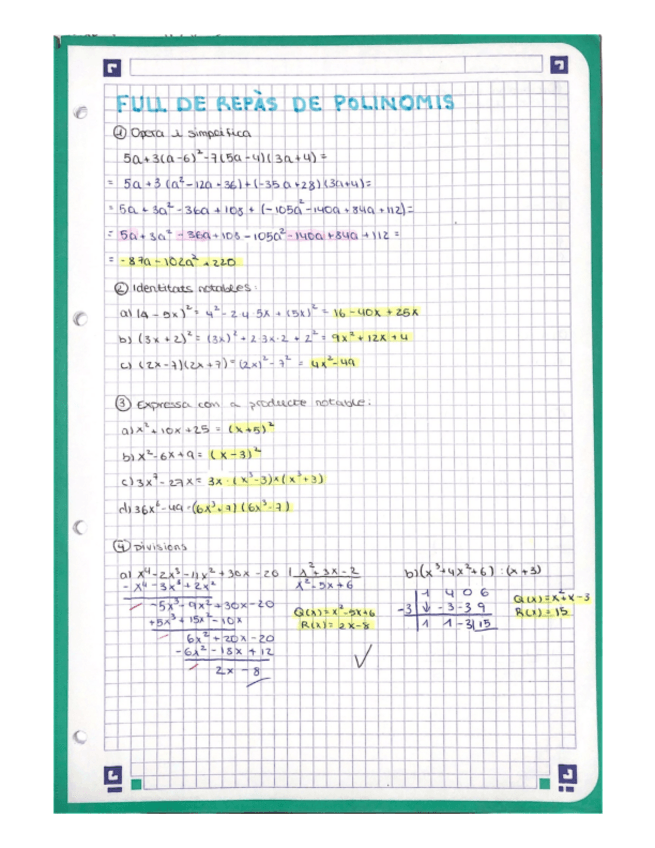 FULL DE REPÀS DE POLINOMIS
① Opera i simplifica
5a+3(a-6)²-7(5a-4)(3a+4)=
= 5a+3(a²-12a+36)+(-35a+28)(3a+4)=
= 5a+3a²-36a+108+(-105a²-140a+84a+112)=
= 5a+3a²-36a+108-105a²-140a+84a+112=
= -87a-102a²+220
② Identitats notables:
a) (4-5x)²= 4²-2·4·5x+(5x)²= 16-40x+25x
b) (3x+2)²= (3x)²+2·3x·2+2²= 9x²+12x+4
c) (2x-7)(2x+7)=(2x)²-7²= 4x²-49
③ Expressa com a producte notable:
a) x²+10x+25= (x+5)²
b) x²-6x+9= (x-3)²
c) 3x⁷-27x= 3x·(x³-3)×(x³+3)
d) 36x⁶-49=(6x³+7)(6x³-7)
④ Divisions
a) x⁴-2x³-11x²+30x-20 | x²+3x-2 b) (x³+4x²+6) : (x+3)
-x⁴-3x³+2x² x²-5x+6
-5x³-9x²+30x-20 Q(x)=x²-5x+6 1 4 0 6 Q(x)=x²+x-3
+5x³+15x²-10x R(x)=2x-8 -3 ↓ -3 -3 9 R(x)=15
6x²+20x-20 1 1 -3 15
-6x²-18x+12
2x-8